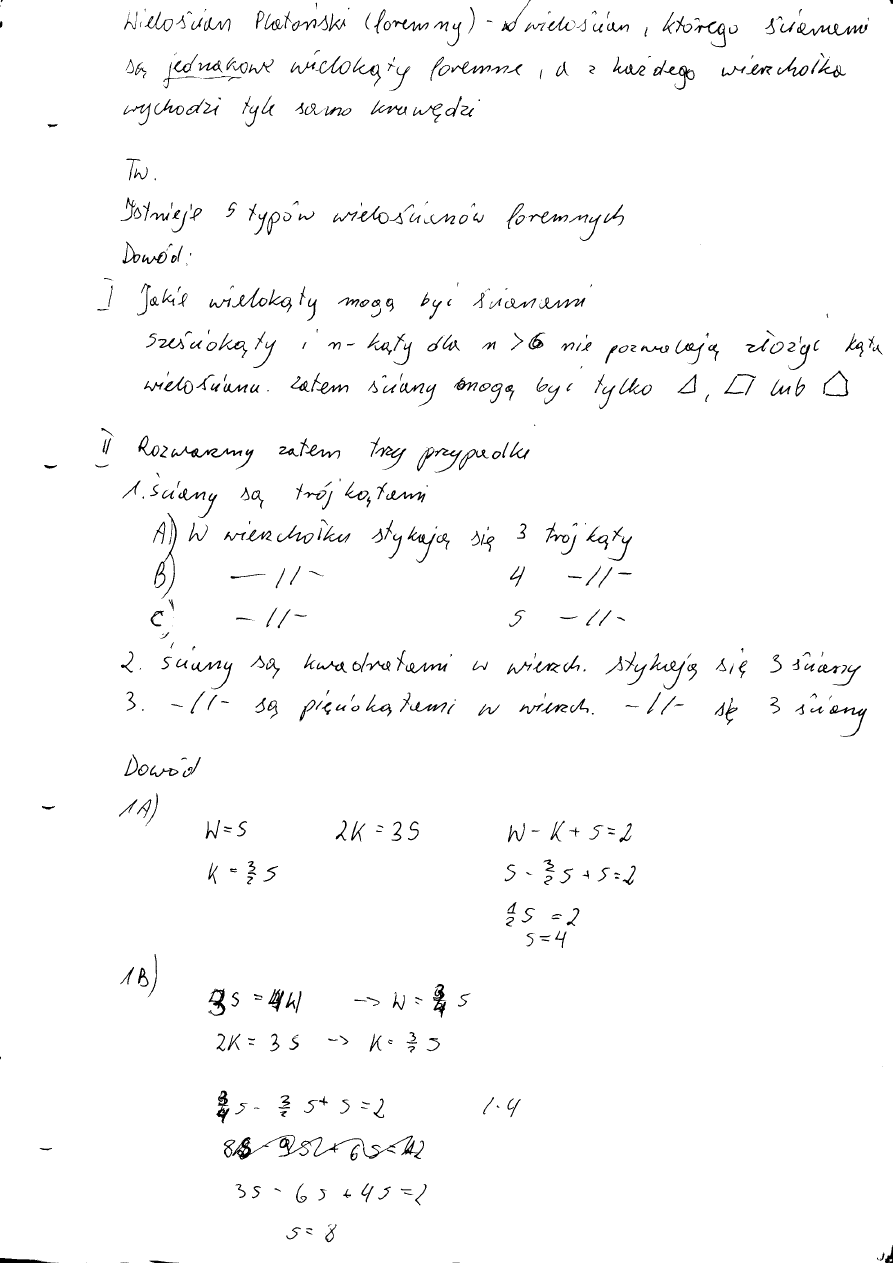 Wielościan Platoński (foremny) - wielościan, którego ścianami
są jednakowe wielokąty foremne, a z każdego wierzchołka
wychodzi tyle samo krawędzi
Tw.
Istnieje 5 typów wielościanów foremnych
Dowód:
I Jakie wielokąty mogą być ścianami
sześciokąty i n-kąty dla n > 6 nie pozwalają złożyć kąta
wielościanu. Zatem ściany mogą być tylko △, □ lub ⌂
II Rozważmy zatem trzy przypadki
1. ściany są trójkątami
A) W wierzchołku stykają się 3 trójkąty
B) -//- 4 -//-
C) -//- 5 -//-
2. ściany są kwadratami w wierzch. stykają się 3 ściany
3. -//- są pięciokątami w wierzch. -//- się 3 ściany
Dowód
1A)
W=S 2K=3S W-K+S=2
K=3/2 S S-3/2 S+S=2
1/2 S=2
S=4
1B)
3S=4W -> W=3/4 S
2K=3S -> K=3/2 S
3/4 S - 3/2 S + S = 2 /·4
3S - 6S + 4S = 2
S=8